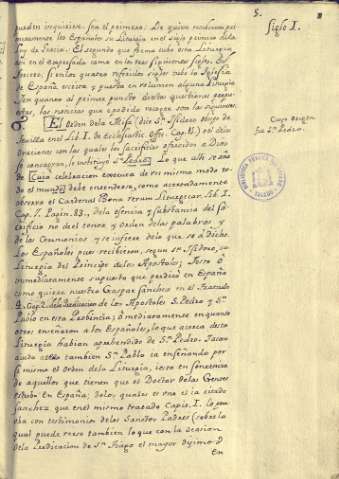 5.
pueden inquirirse. Sea el primero: De quien recibieron pri
meramente los Españoles su Liturgia en el siglo primero de la
Ley de Gracia. El segundo que forma tubo esta Liturgia
en el empresado como en los tres siguientes siglos. El
tercero, si en los quatro referidos siglos tubo la Iglesia
de España escrita y puesta en volumen alguna Liturgia
Por quanto al primer punto destas questiones proque
las, las noticias que e podido recoger son las siguientes.
El orden de la Misa (dice Sn. Isidoro obispo de
Sevilla en el Lib. I. de Ecclesiastic. Offic. Cap. 15.) o el de las
oraciones con las quales los sacrificios ofrecidos a Dios
se consagran, lo instituyó Sn. Pedro. Lo que alli se añade
Cuia celebracion executa de un mismo modo to
do el mundo debe entenderse, como acertadamente
observó el Cardenal Bona rerum Liturgicar. Lib. I.
Cap. 7. pagin. 83., de la esencia y substancia del Sa
crificio no de el tenor y orden de las palabras, y
de las Ceremonias y se infiere de lo que se a dicho.
Los Españoles pues recibieron, segun Sn. Isidoro, su
Liturgia del Principe de los Apostoles; Pero ó
inmediatamente supuesto que predicó en España
como quiere nuestro Gaspar Sanchez en el Tratado
de los Apostoles S. Pedro y Sn.
Pablo en esta Probincia; ó mediatamente en quanto
otros enseñaron a los Españoles, lo que acerca desta
Liturgia habian aprehendido de Sn. Pedro. Para
ayuda a esto tambien Sn. Pablo ia enseñando por
si mismo el orden de la Liturgia, iesto en sentencia
de aquellos que tienen que el Doctor de las Gentes
estubo en España; delo, quales es uno el ia citado
Sanchez que en el mismo tratado Capit. I. lo prue
ba con testimonios de los Santos Padres (sobre lo
qual puede verse tambien lo que con la ocasion
de la Predicacion de Sn. Tiago el mayor diximos)
En
Siglo I.
Cuyo origen
fue Sn. Pedro.